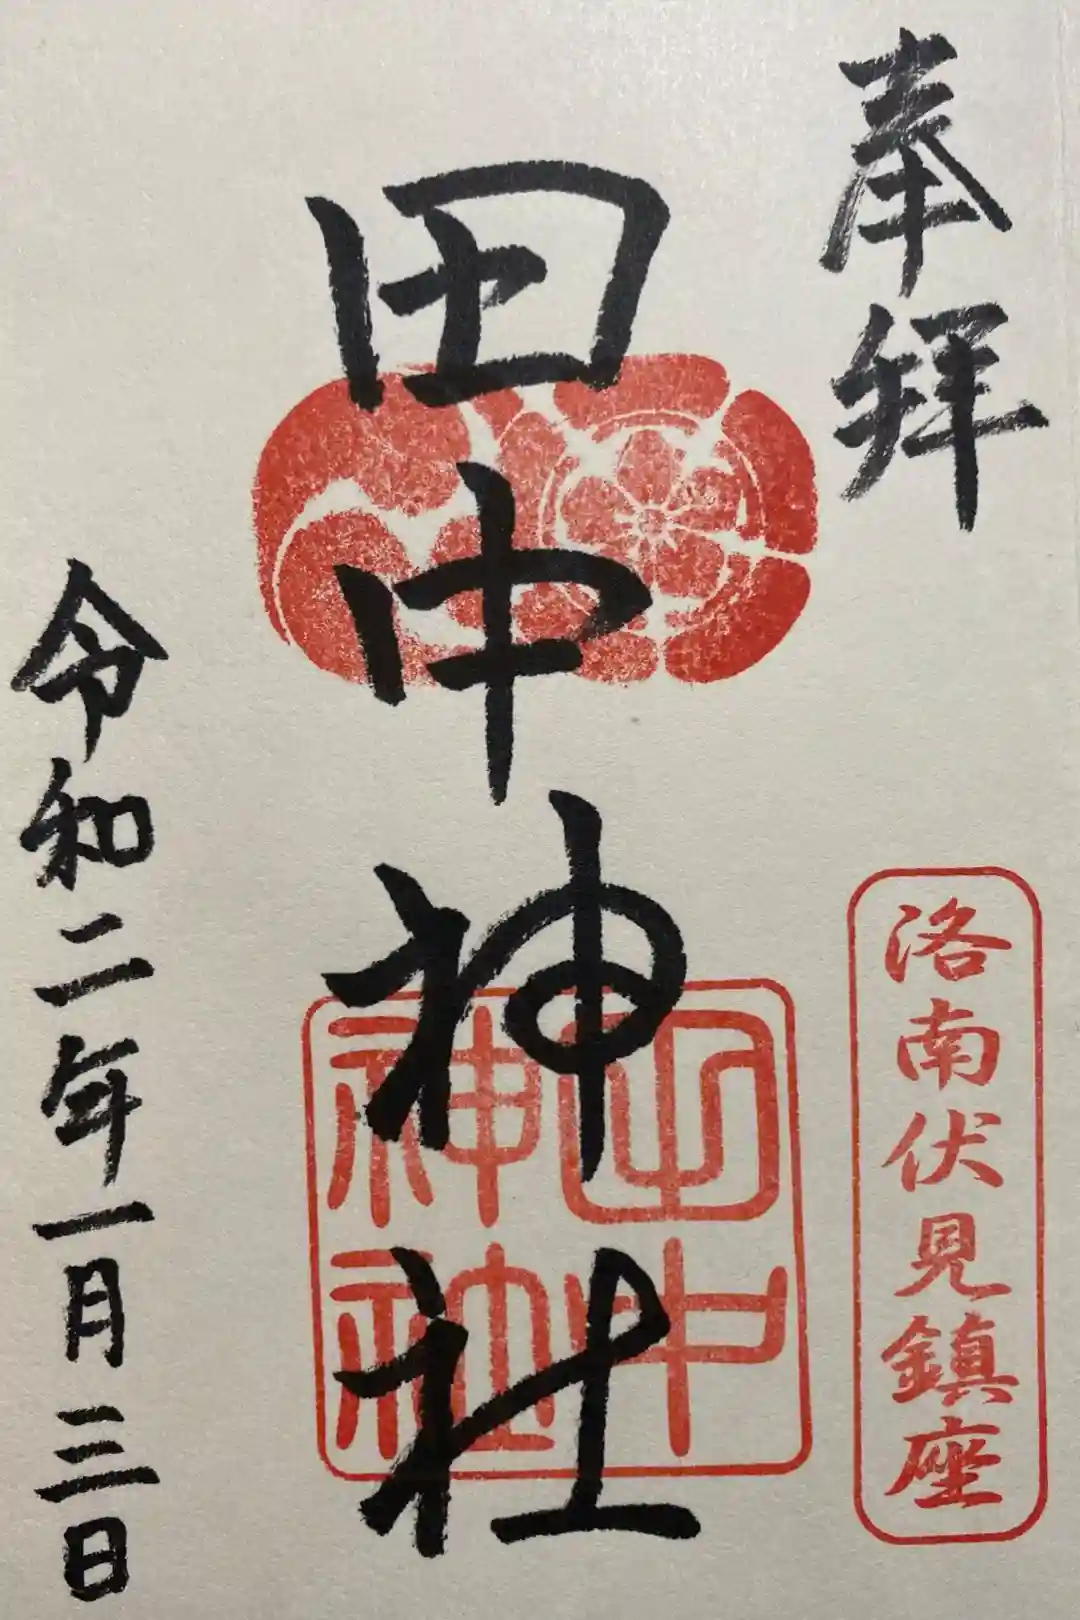 奉拝
洛南伏見鎮座
田中神社
田中
神社
令和二年一月三日